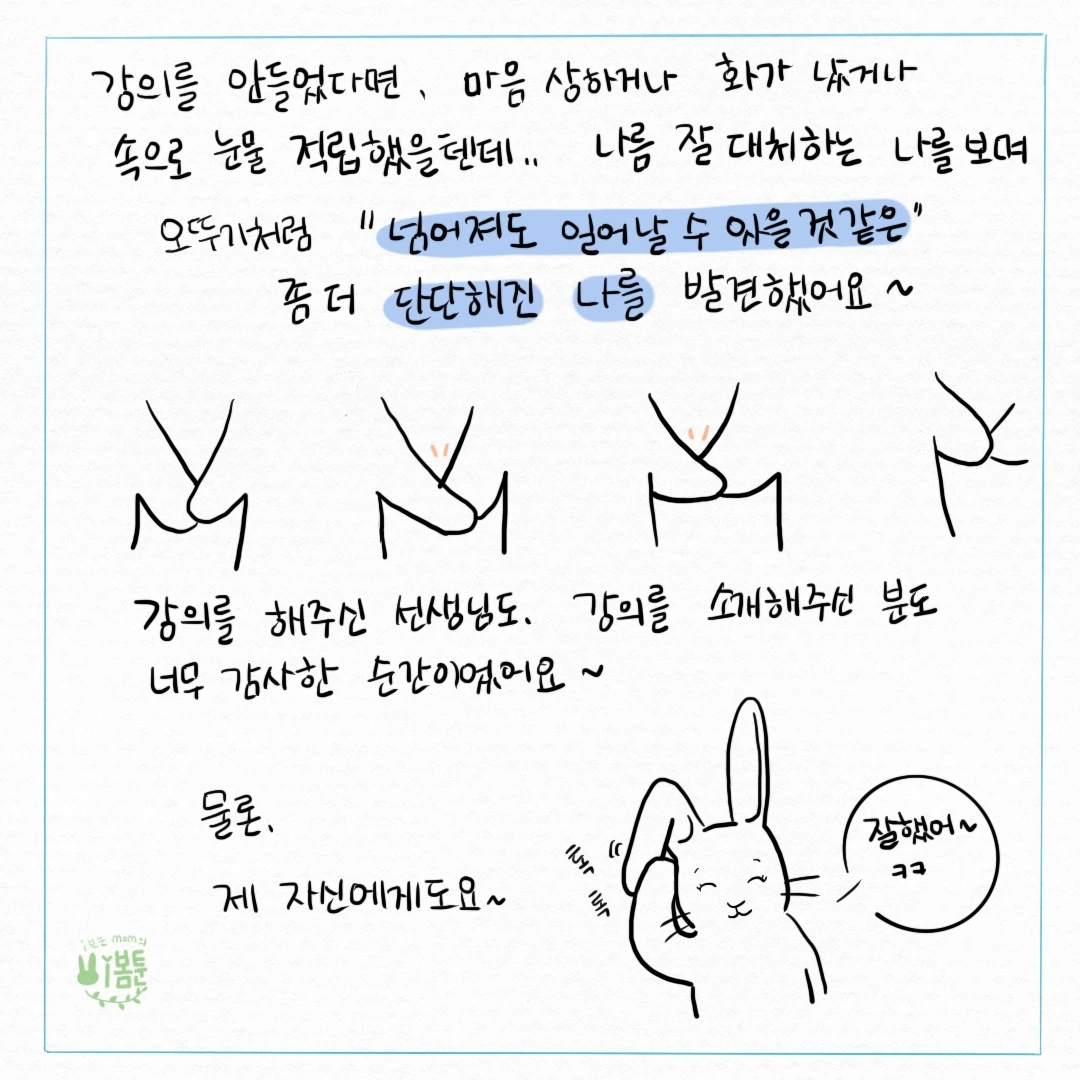 강의를 안들었다면, 마음 상하거나 화가 났거나
속으로 눈물 적립했을텐데.. 나름 잘 대처하는 나를 보며
오뚜기처럼 "넘어져도 일어날 수 있을것같은"
좀 더 단단해진 나를 발견했어요~
강의를 해주신 선생님도, 강의를 소개해주신 분도
너무 감사한 순간이었어요~
물론,
제 자신에게도요~
톡
톡
잘했어~
ㅋㅋ
i보는 mom의
i봄툰